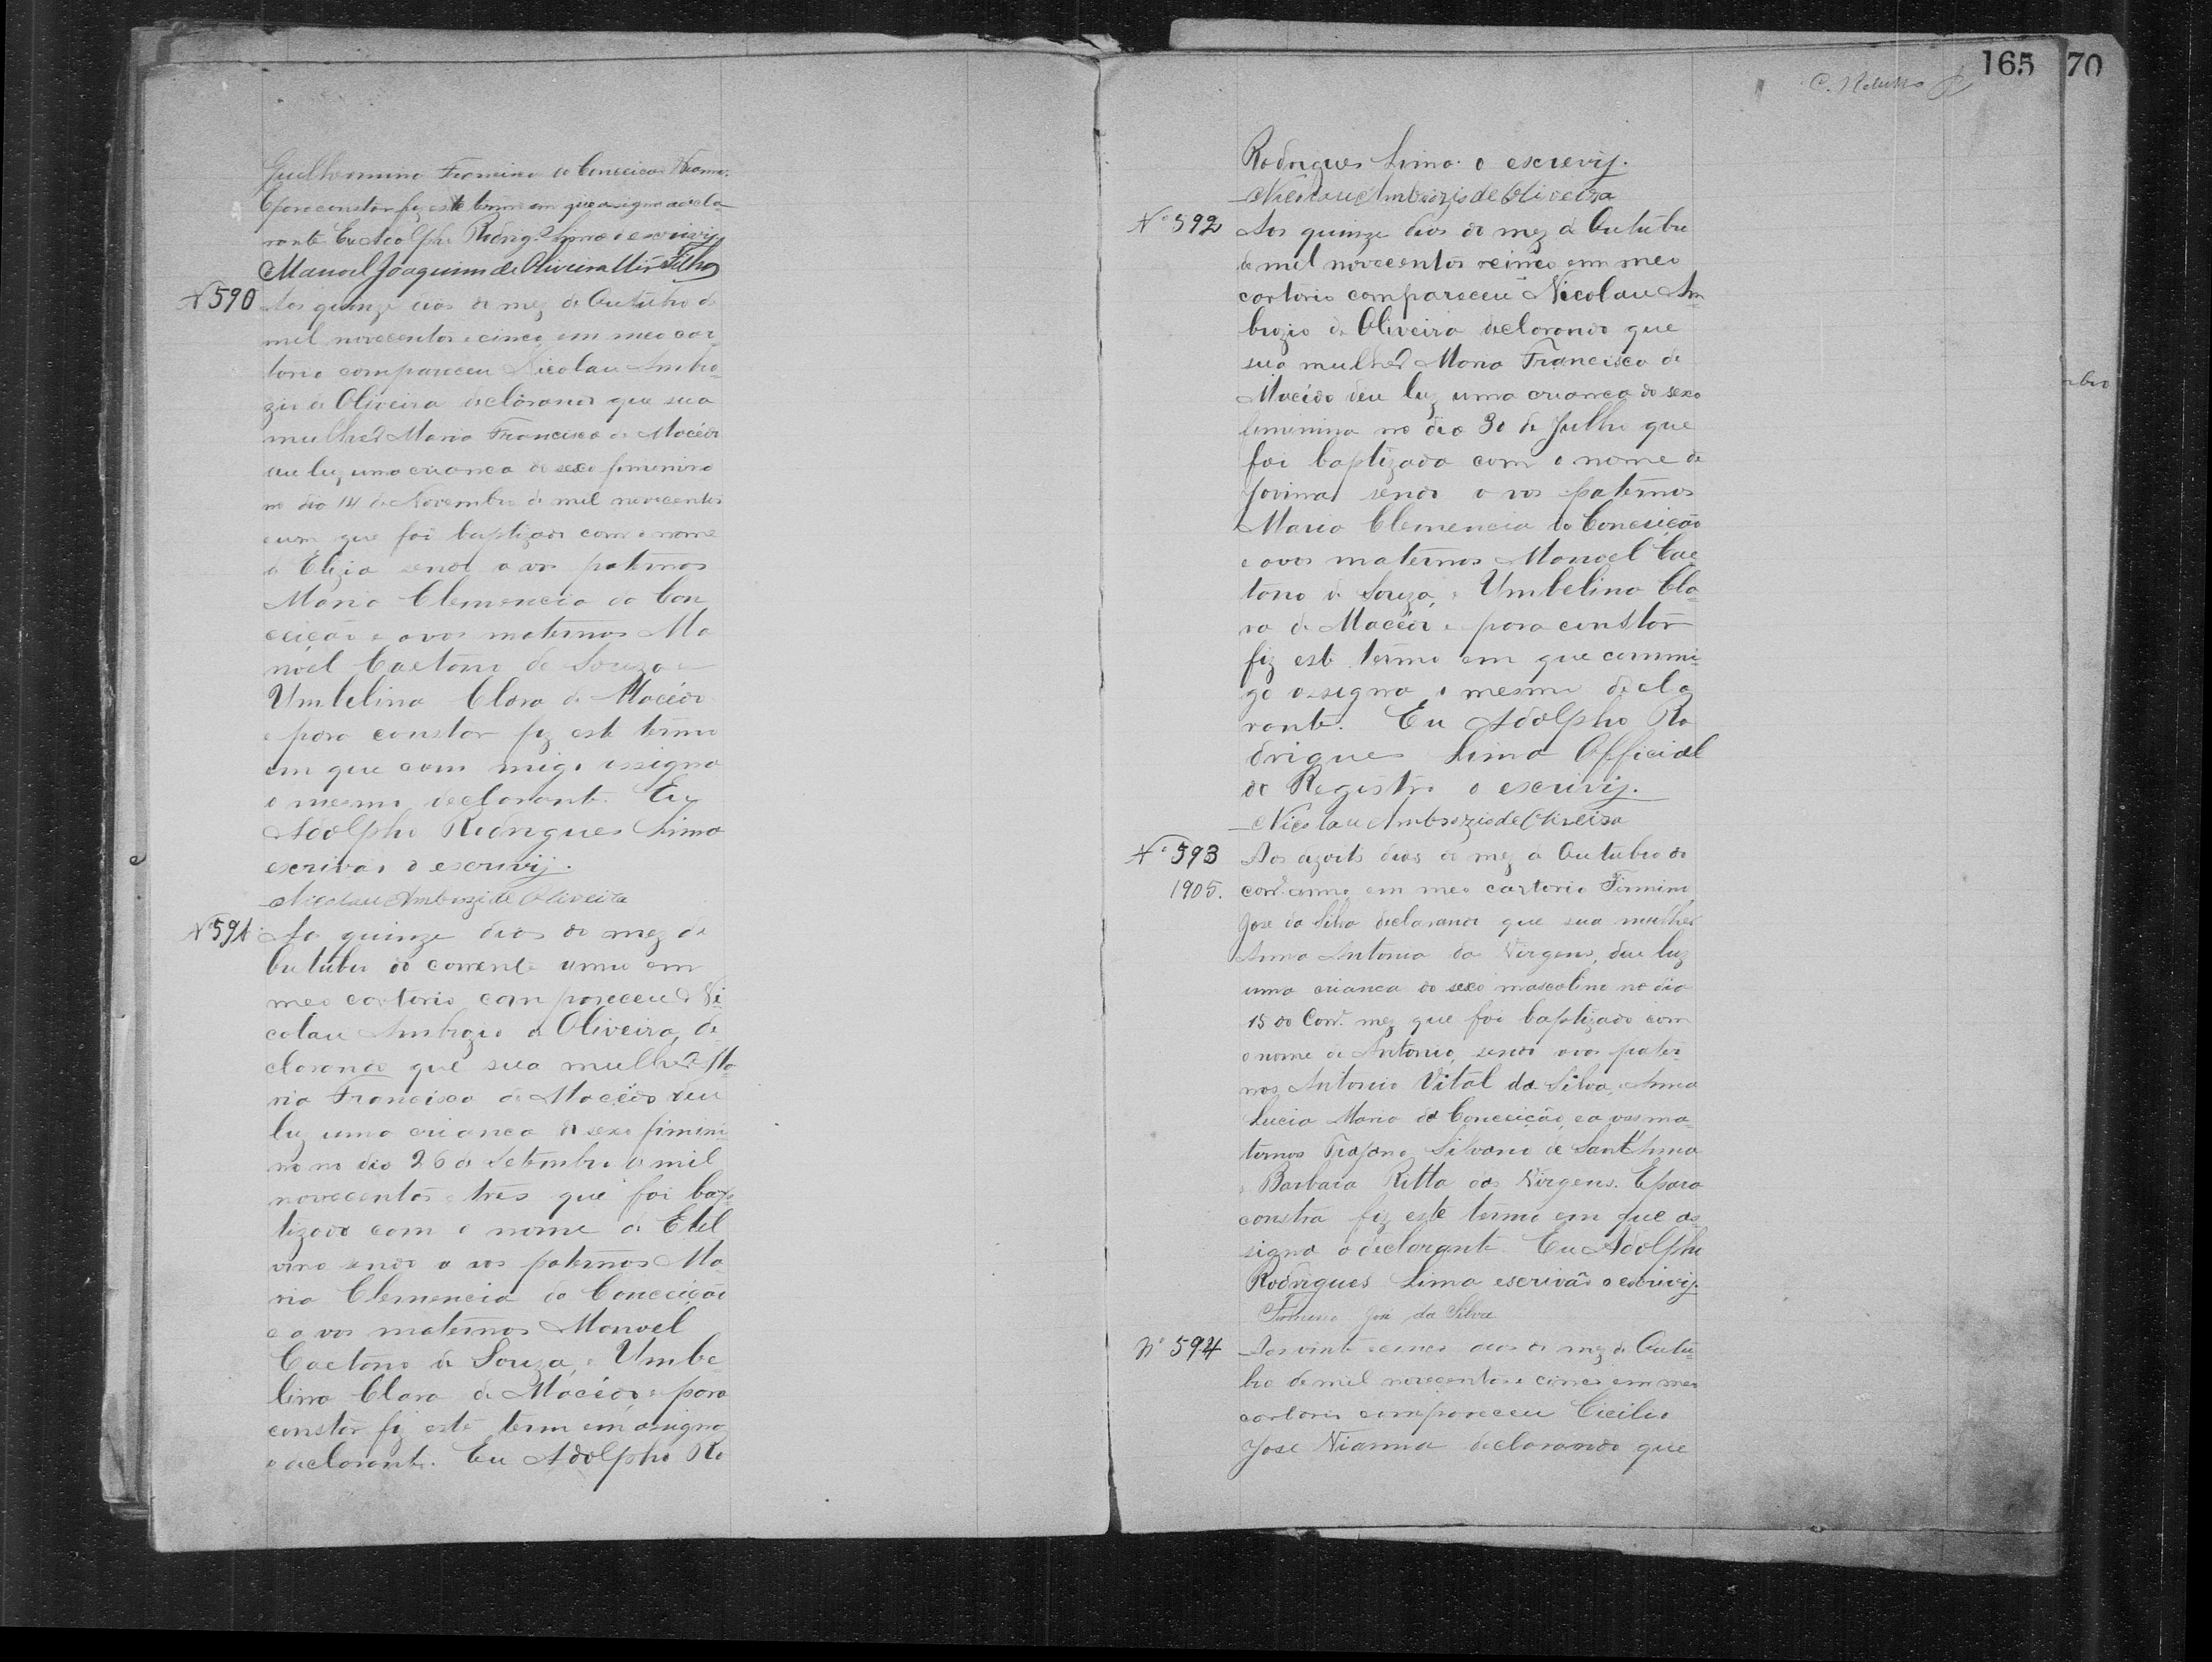 Guilhermina Francisca da Conceicao Vianna.
E para constar fiz este termo em que asigna adecla-
rante Eu Adolpho Rodrig.s Lima o escrivij
Manoel Joaquim de Oliveira Filho
Nº 590 Aos quinze dias do mez de Outubro de
mil novecentos e cinco, em meo car
torio compareceu Nicolau Ambro
zio de Oliveira declarando que sua
mulher Maria Francisca de Macêdo
deu luz uma crianca do sexo feminino
no dia 14 de Novembro de mil novecentos
e um, que foi baptizada com o nome
de Elizia sendo avos paternos
Maria Clemencia da Con
ceição e avos maternos Ma
noel Caetano de Souza e
Umbelina Clara de Macêdo
e para constar fiz este termo
em que com migo assigna
o mesmo declarante. Eu
Adolpho Rodrigues Lima
escrivão o escrivij.
Nicolau Ambrozi de Oliveira
Nº 591. Ao quinze dias do mez de
Outubro do corrente anno em
meo cartorio, compareceu Ni
colau Ambrozio de Oliveira, de
clarando que sua mulher Ma-
ria Francisca de Macêdo deu
luz uma crianca do sexo fimini-
no no dia 26 de Setembro de mil
novecentos e três que foi bap
tizada com o nome de Etel
vina sendo avos paternos Ma-
ria Clemencia da Conceição
e avos maternos Manoel
Caetano de Souza, e Umbe
lina Clara de Macêdo, e para
constar fiz este term em asigna
o declarante. Eu Adolpho Ro
165 70
Rodrigues Lima o escrevij.
Nicolau Ambrozio de Oliveira
Nº 592 Aos quinze dias do mez de Outubro
de mil novecentos e cinco em meo
cartorio compareceu Nicolau Am
brozio de Oliveira declarando que
sua mulher Maria Francisca de
Macêdo deu luz uma crianca do sexo
feminina no dia 30 de Julho que
foi baptizada com o nome de
Jovina sendo avos paternos
Maria Clemencia da Conceição
e avos maternos Manoel Cae
tano de Souza, e Umbelina Cla-
ra de Macêdo e para constar
fiz este termo em que commi-
go assigna o mesmo decla
rante. Eu Adolpho Ro
drigues Lima Official
do Registro o escrivij.
Nicolau Ambrozio de Oliveira
Nº 593 Aos dezoito dias do mez de Outubro do
1905. corr.e anno em meo cartorio Firmino
Jose da Silva declarando que sua mulher
Anna Antonia das Virgens, deu luz
uma crianca do sexo mascolino no dia
15 do Corr.e mez que foi baptizado com
o nome de Antonio, sendo avos pater-
nos Antonio Vital da Silva, e Anna
Lucia Maria da Conceição, e avos ma-
ternos Trajano Silvano de Sant'Anna
e Barbara Ritta das Virgens. E para
constra fiz este termo em que as-
signa o declarante. Eu Adolpho
Rodrigues Lima escrivão o escrivij.
Firmino José da Silva
Nº 594 Aos vinte e cinco dias do mez de Outu-
bro de mil novecentos e cinco em meo
cartorio compareceu Cicilio
Jose Vianna declarando que